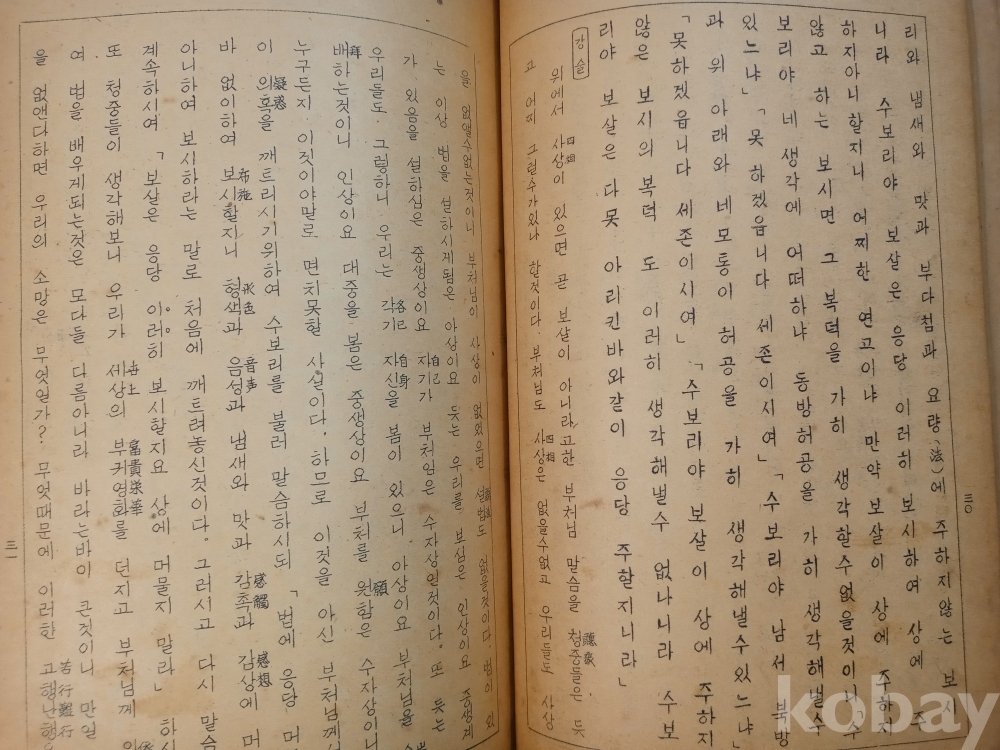 리와 냄새와 맛과 부다첨과 요량(法)에 주하지않는 보시
니라 수보리야 보살은 응당 이러히 보시하여 상에 주
하지아니할지니 어찌한 연고이냐 만약 보살이 상에 주하지
않고 하는 보시면 그 복덕을 가히 생각할수없을것이니
보리야 네 생각에 어떠하냐 동방허공을 가히 생각해낼수
있느냐」「못 하겠읍니다 세존이시여」「수보리야 남서북방
과 위 아래와 네모통이 허공을 가히 생각해낼수있느냐」
「못하겠읍니다 세존이시여」「수보리야 보살이 상에 주하지
않은 보시의 복덕 도 이러히 생각해낼수 없나니라 수보
리야 보살은 다못 아리킨바와같이 응당 주할지니라」
강술
위에서 사상이 있으면 곧 보살이 아니라고한 부처님 말슴을 청중들은 듯
四相 聽衆
고 어찌 그럴수가있나 할것이다 부처님도 사상은 없을수없고 우리들도 사상
四相
三〇
을 없앨수없는것이니 부처님이 사상이 없었으면 설법도 없을것이다 법이 있
는 이상 법을 설하시게됨은 아상이요 듯는 우리를 보심은 인상이요 중생계
가 있음을 설하심은 중생상이요 자기가 부처임은 수자상일것이다. 또 듯는
自己
우리들도 그렇하니 우리는 각기 자신을 봄이 있으니 아상이요 부처님을
各己 自身
배하는것이니 인상이요 대중을 봄은 중생상이요 부처를 원함은 수자상이니
拜 願
누구든지 이짓이야말로 면치못할 사실이다. 하므로 이것을 아신 부처님께서
이 의혹을 깨트리시기위하여 수보리를 불러 말슴하시되 「법에 응당 머
疑惑
바 없이하여 보시할지니 형색과 음성과 냄새와 맛과 감촉과 감상에 머
布施 形色 音声 感觸 感想
아니하여 보시하라는 말로 처음에 깨트려놓신것이다. 그러시고 다시 말슴
계속하시여 「보살은 응당 이러히 보시할지요 상에 머물지 말라」 하시
또 청중들이 생각해보니 우리가 세상의 부귀영화를 던지고 부처님께 의
世上 富貴栄華
여 법을 배우게되는것은 모다들 다름아니라 바라는바이 큰것이니 만일
을 없앤다하면 우리의 소망은 무엇일가? 무엇때문에 이러한 고행난행을
苦行難行
三一
kobay